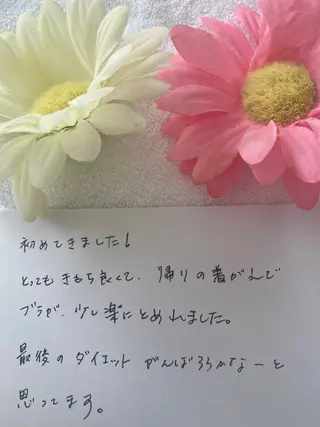 初めてきました!
とってもきもち良くて、帰りの着がえで
ブラが、少し楽にとめれました。
最後のダイエットがんばろうかなーと
思ってます。